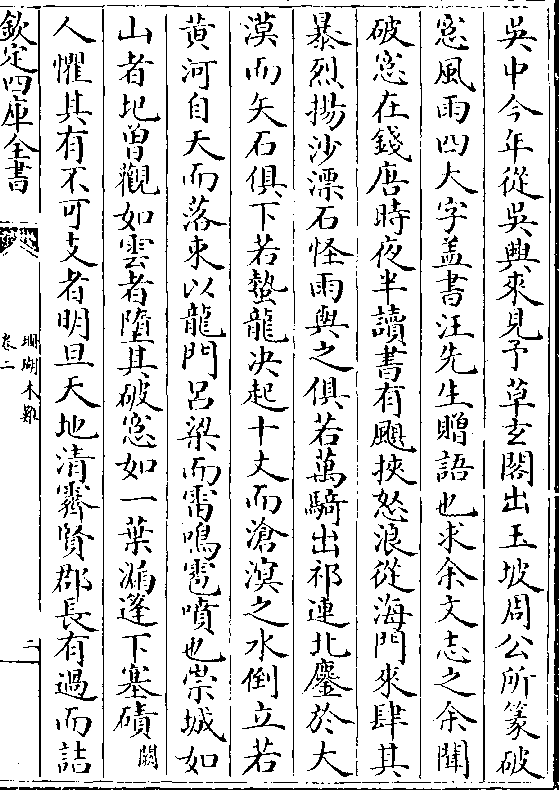 吳中今年從吳興來見予草玄閣出玉坡周公所篆破
窓風雨四大字盖書汪先生贈語也求余文志之余聞
破窓在錢唐時夜半讀書有颶挾怒浪從海門來肆其
暴烈揚沙漂石怪雨與之俱若萬騎出祁連北鏖於大
漠而矢石俱下若蟄龍决起十丈而滄溟之水倒立若
黃河自天而落束以龍門呂梁而雷鳴雹噴也崇城如
山者圮曽觀如雲者墮其破窓如一葉㴑逢下塞磧闕
人懼其有不可支者明旦天地清霽賢郡長有過而詰
欽定四庫全書
珊瑚木難
卷二
二